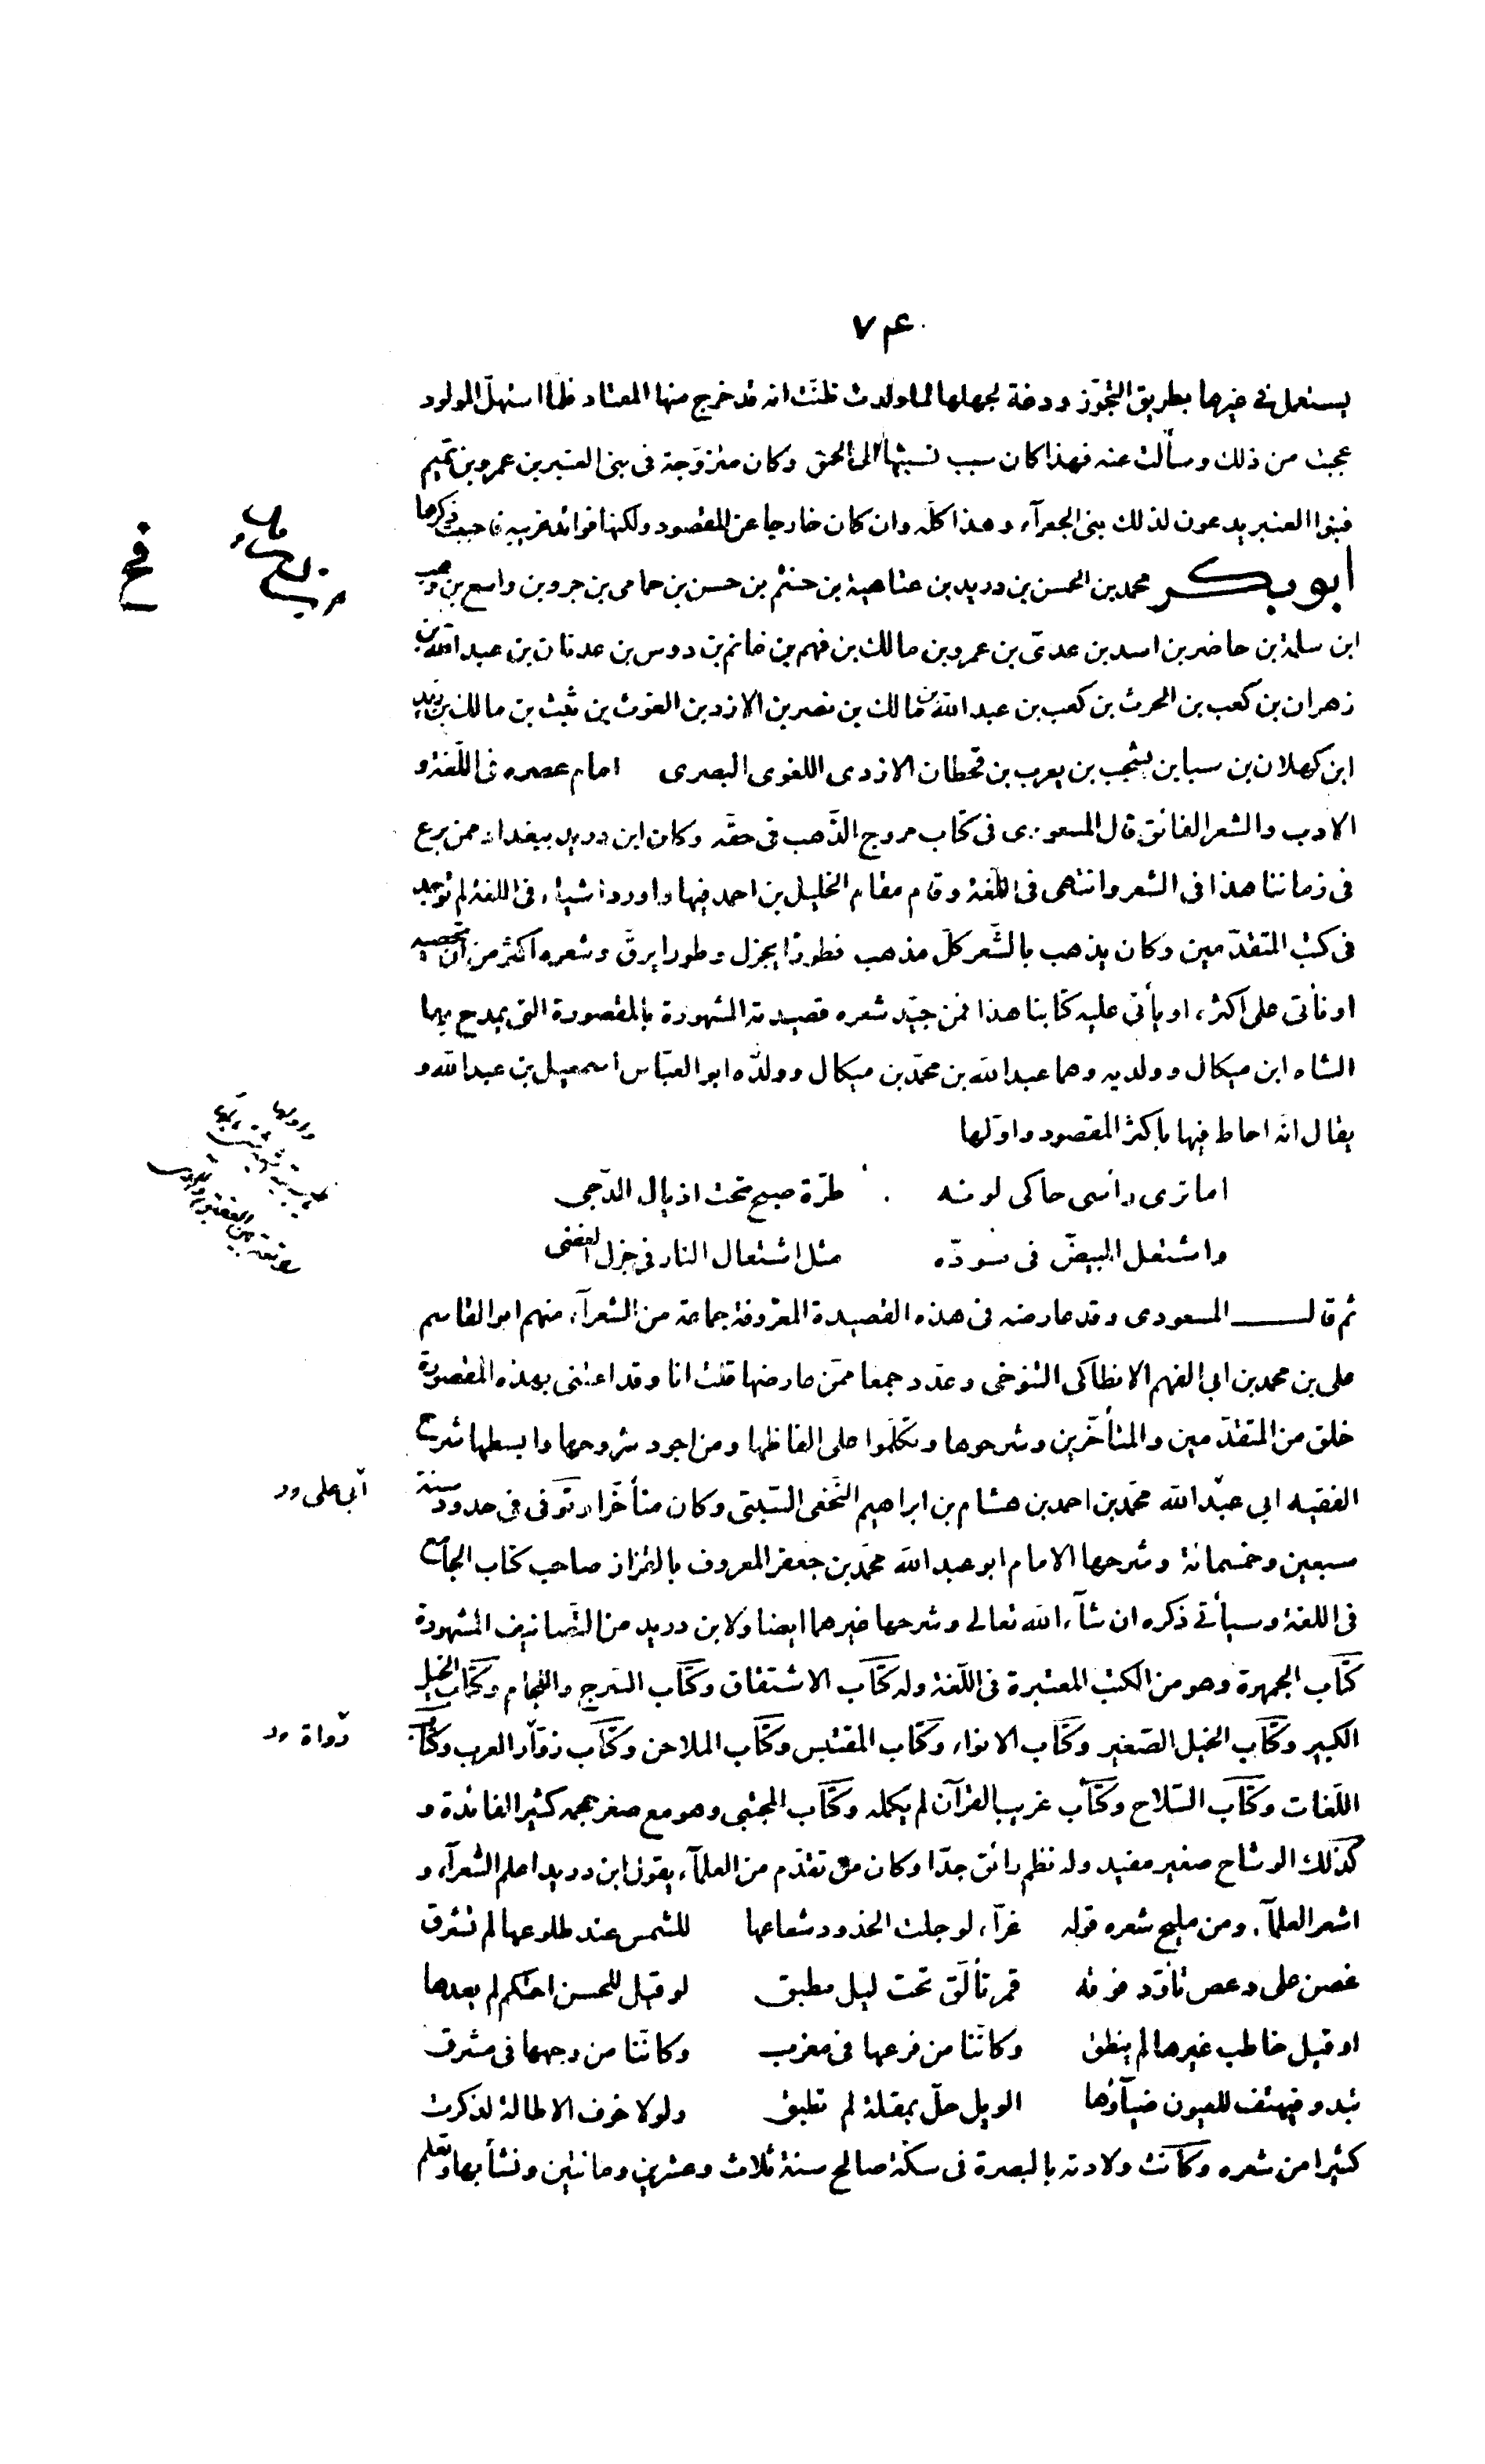 ٧٤
يستعمل في غيرها بطريق التجوّز ودغة لجهلها لما ولدت ظنّت انه قد خرج منها المعتاد فلمّا استهلّ المولود
عجبت من ذلك وسألت عنه فهذا كان سبب نسبتها الى الحمق وكان متزوّجة فى بنى العنبر بن عمرو بن تميم
فبنوا العنبر يدعون لذلك بنى الجعرآء وهذا كلّه وان كان خارجا عن المقصود ولكنها فوائد غريبه فاحببت ذكرها
ابو بكر محمد بن الحسن بن دريد بن عتاهية بن حنتم بن حسن بن حمامى بن جرو بن واسع بن وهب
ابن سلمة بن حاضر بن اسد بن عدىّ بن عمرو بن مالك بن فهم بن غانم بن دوس بن عدنان بن عبد الله بن
زهران بن كعب بن الحرث بن كعب بن عبد الله بن مالك بن نصر بن الازد بن الغوث بن نبت بن مالك بن زيد
ابن كهلان بن سبا بن يشجب بن يعرب بن قحطان الازدى اللغوى البصرى امام عصره فى اللّغة و
الادب والشعر الفائق قال المسعودى فى كتاب مروج الذّهب فى حقّه وكان ابن دريد ببغداد ممن برع
فى زماننا هذا فى الشعر وانتهى فى اللّغة وقام مقام الخليل بن احمد فيها واورد اشياء فى اللغة لم توجد
فى كتب المتقدّمين وكان يذهب بالشّعر كلّ مذهب فطورًا يجزل وطورا يرقّ وشعره اكثر من ان نحصيه
او نأتى على اكثره او يأتى عليه كتابنا هذا فمن جيّد شعره قصيدته المشهورة بالمقصورة التى يمدح بها
الشاه ابن ميكال وولديه وهما عبد الله بن محمّد بن ميكال وولدّه ابو العبّاس اسمعيل بن عبد الله و
يقال انه احاط فيها باكثر المقصود واوّلها
اما ترى رأسى حاكى لونه طرّة صبح تحت اذيال الدّجى
واشتعل المبيضّ فى مسودّه مثل اشتعال النار فى جزل الغضى
ثم قال المسعودى وقد عارضه فى هذه القصيدة المعروفة جماعة من الشعرآء منهم ابو القاسم
على بن محمد بن ابى الفهم الانطاكى التنوخى وعدّد جمعا ممّن عارضها قلت انا وقد اعتنى بهذه المقصورة
خلق من المتقدّمين والمتأخّرين وشرحوها وتكلّموا على الفاظها ومن اجود شروحها وابسطها شرح
الفقيه ابى عبد الله محمّد بن احمد بن هشام بن ابراهيم اللّخمى السّبتى وكان متأخّرا توفى فى حدود سنة
أبى على ور
سبعين وخمسمائة وشرحها الامام ابو عبد الله محمّد بن جعفر المعروف بالقزاز صاحب كتاب الجامع
فى اللغة وسيأتى ذكره ان شآء الله تعالى وشرحها غيرهما ايضا ولابن دريد من التّصانيف المشهورة
كتاب الجمهرة وهو من الكتب المعتبرة فى اللّغة وله كتاب الاشتقاق وكتاب السّرج واللّجام وكتاب الخيل
الكبير وكتاب الخيل الصّغير وكتاب الانواء وكتاب المقتبس وكتاب الملاحن وكتاب زوّار العرب وكتاب
رواة ور
اللّغات وكتاب السّلاح وكتاب غريب القرآن لم يكمله وكتاب المجتبى وهو مع صغر حجمه كثير الفائدة و
كذلك الوشاح صغير مفيد وله نظم رائق جدّا وكان من تقدّم من العلمآء يقول ابن دريد اعلم الشعرآء و
اشعر العلمآء ومن مليح شعره قوله غرّآء لو جلت الخدود شعاعها للشمس عند طلوعها لم تشرق
غصن على دعص تأوّد فوقه قمر تألّق تحت ليل مطبق لو قيل للحسن احتكم لم يعدها
او قيل خاطب غيرها لم ينطق وكاننا من فرعها فى مغرب وكاننا من وجهها فى مشرق
تبدو فيهتف للعيون ضيآؤها الويل حلّ بمقلة لم تطبق ولولا خوف الاطالة لذكرت
كثيرا من شعره وكانت ولادته بالبصرة فى سكّة صالح سنة ثلاث وعشرين ومائتين ونشأ بها وتعلم